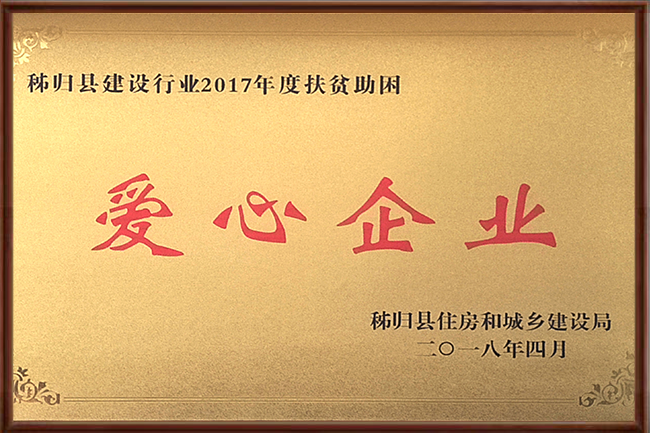 秭归县建设行业2017年度扶贫助困
爱心企业
秭归县住房和城乡建设局
二〇一八年四月